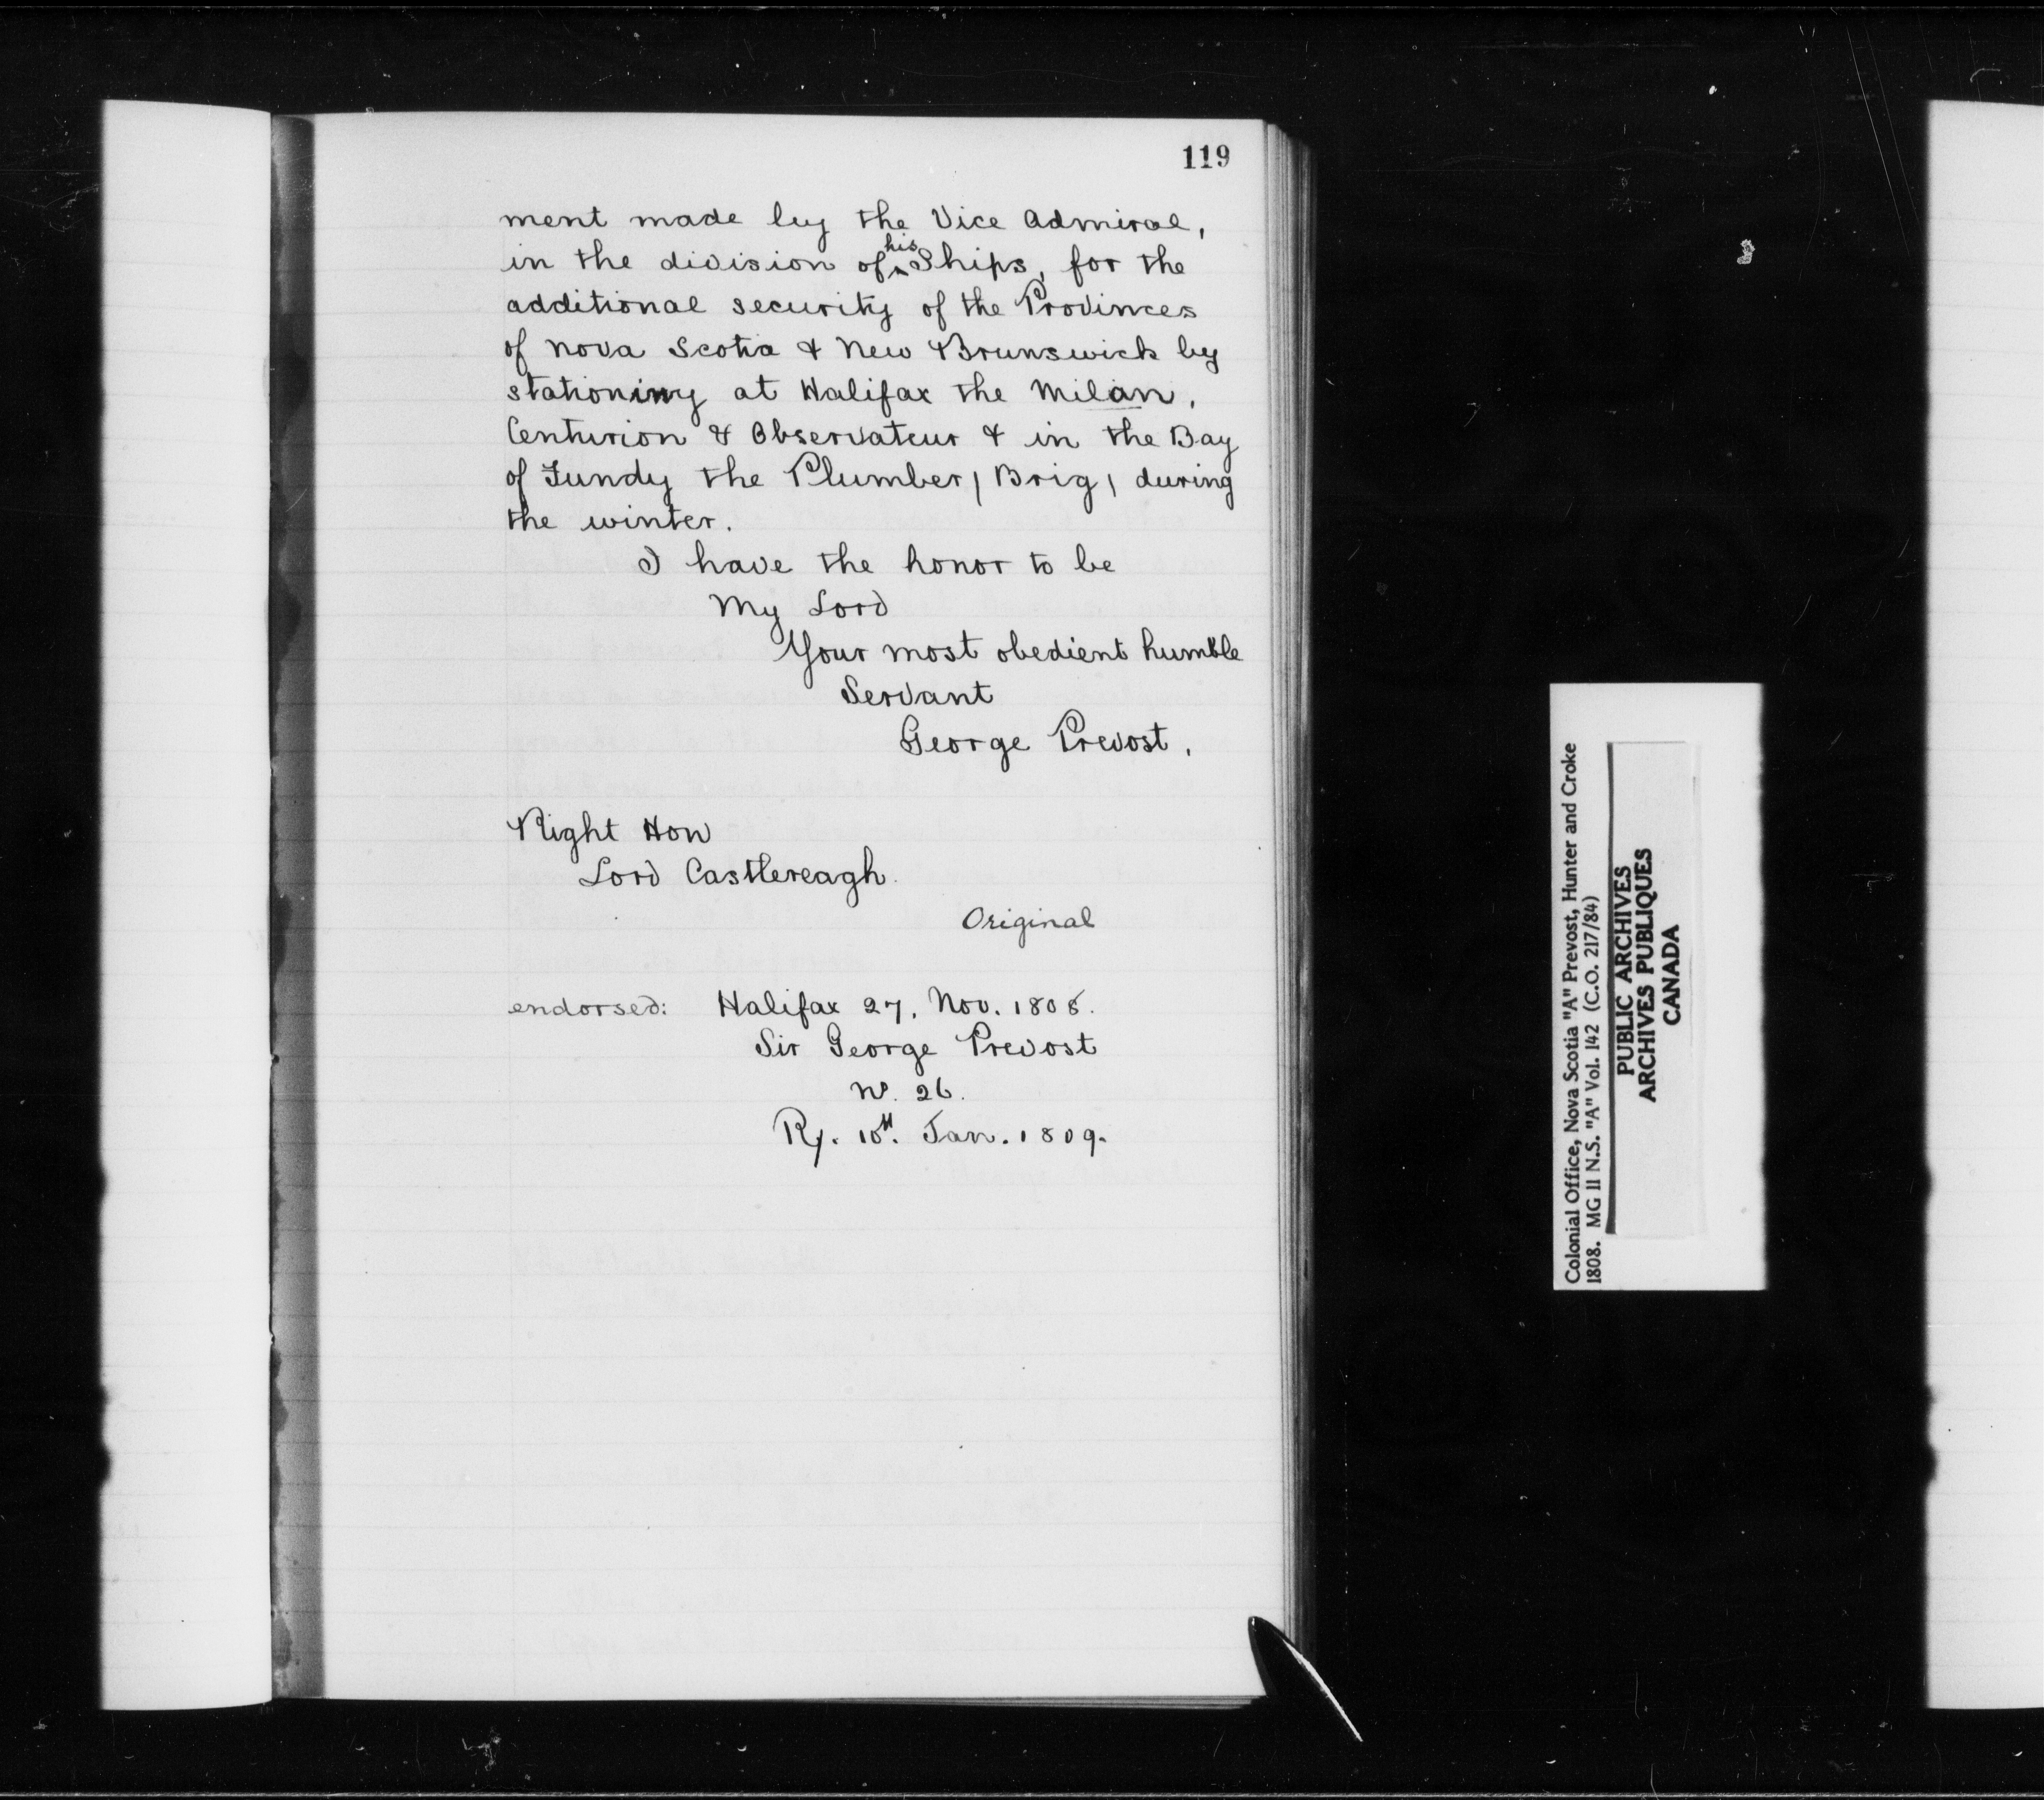 119
ment made by the Vice Admiral,
in the division of ^his Ships, for the
additional security of the Provinces
of Nova Scotia & New Brunswick by
stationing at Halifax the Milan,
Centurion & Observateur & in the Bay
of Fundy the Plumber, Brig, during
the winter.
I have the honor to be
My Lord
Your most obedient humble
Servant
George Prevost.
Right Hon
Lord Castlereagh.
Original
endorsed: Halifax 27. Nov. 1808.
Sir George Prevost
No. 26.
Rx. 10th. Jan. 1809.
Colonial Office, Nova Scotia "A" Prevost, Hunter and Croke
1808. MG 11 N.S. "A" Vol. 142 (C.O. 217/84)
PUBLIC ARCHIVES
ARCHIVES PUBLIQUES
CANADA